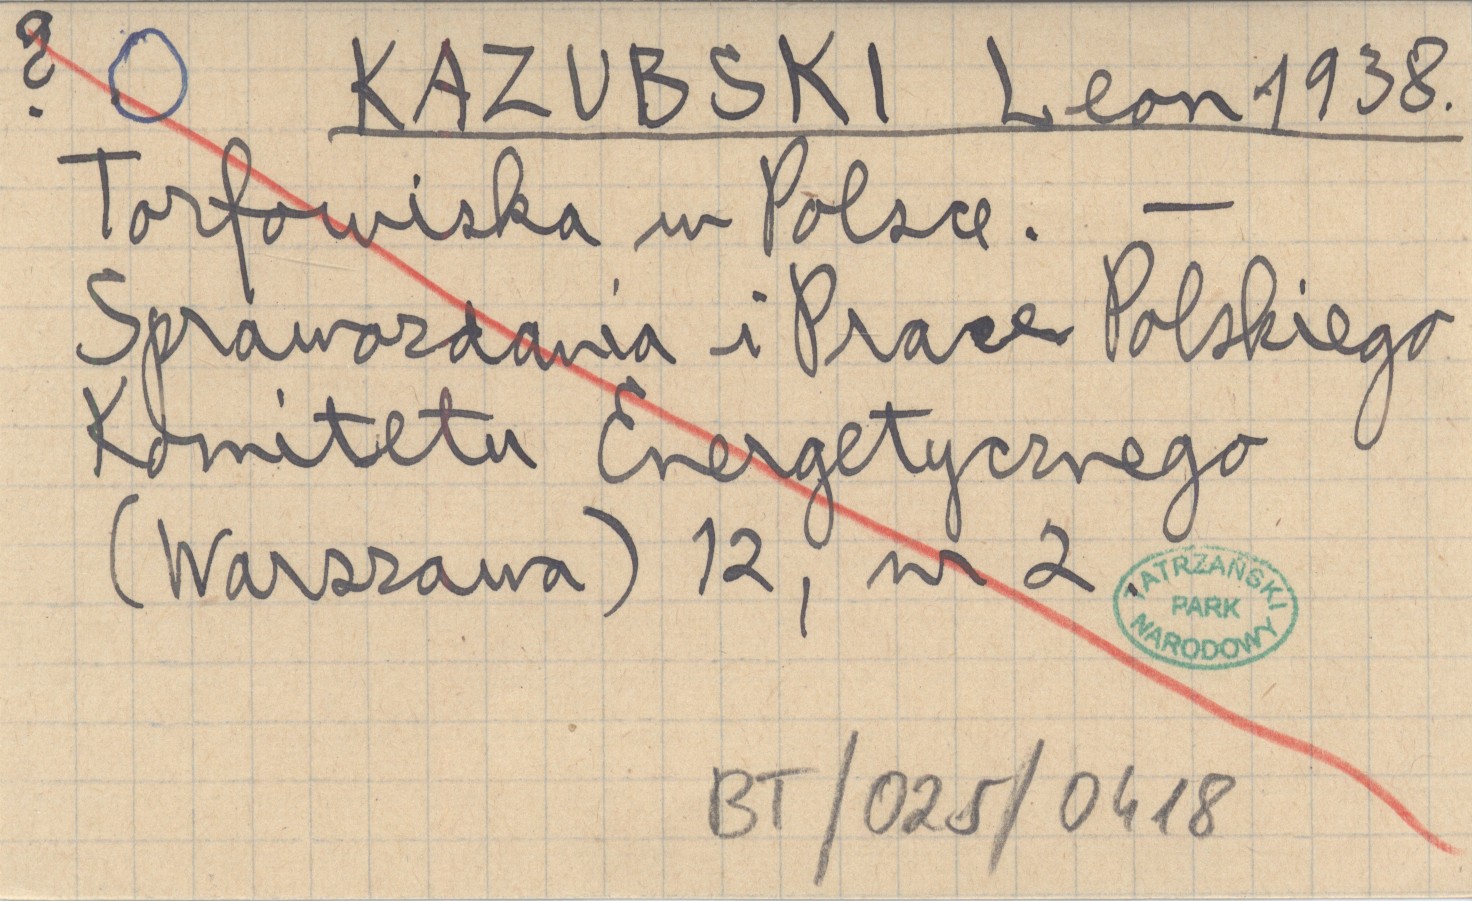 ? O KAZUBSKI Leon 1938.
Torfowiska w Polsce. —
Sprawozdania i Prace Polskiego
Komitetu Energetycznego
(Warszawa) 12, nr 2.
TATRZAŃSKI
PARK
NARODOWY
BT/025/0418